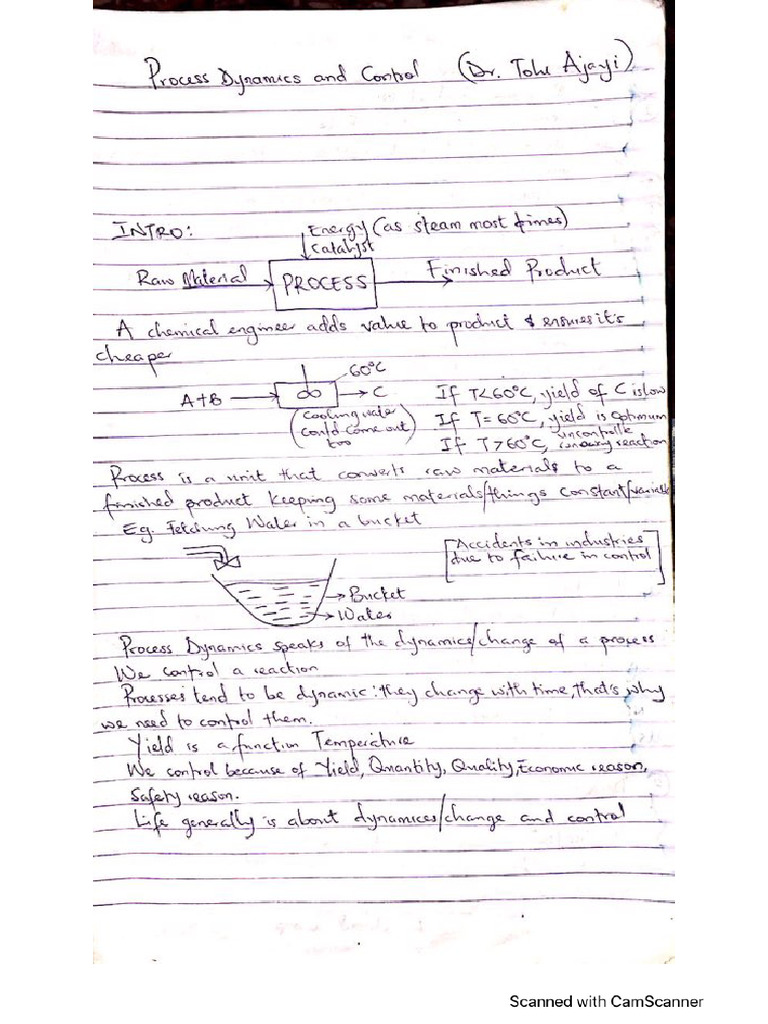 Process Dynamics and Control (Dr. Tolu Ajayi)
INTRO:
Energy (as steam most times)
Catalyst
Raw Material
PROCESS
Finished Product
A chemical engineer adds value to product & ensures it's
cheaper
60°C
A+B
C
(Cooling water
could come out
too)
If T<60°C, yield of C is low
If T=60°C, yield is optimum
If T>60°C, reaction
Process is a unit that converts raw materials to a
finished product keeping some materials/things constant/variable
Eg. Fetching Water in a bucket
[Accidents in industries
due to failure in control]
Bucket
Water
Process Dynamics speaks of the dynamics/change of a process
We control a reaction
Processes tend to be dynamic: they change with time, that's why
we need to control them.
Yield is a function Temperature
We control because of Yield, Quantity, Quality, Economic reason,
Safety reason.
Life generally is about dynamices/change and control
Scanned with CamScanner